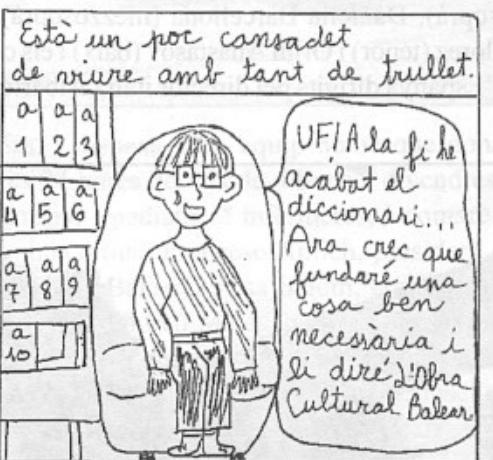 Està un poc cansadet
de viure amb tant de trullet.
a a a
1 2 3
a a a
4 5 6
a a a
7 8 9
a
10
UF! A la fi he
acabat el
diccionari...
Ara crec que
fundaré una
cosa ben
necessària i
li diré L'Obra
Cultural Balear